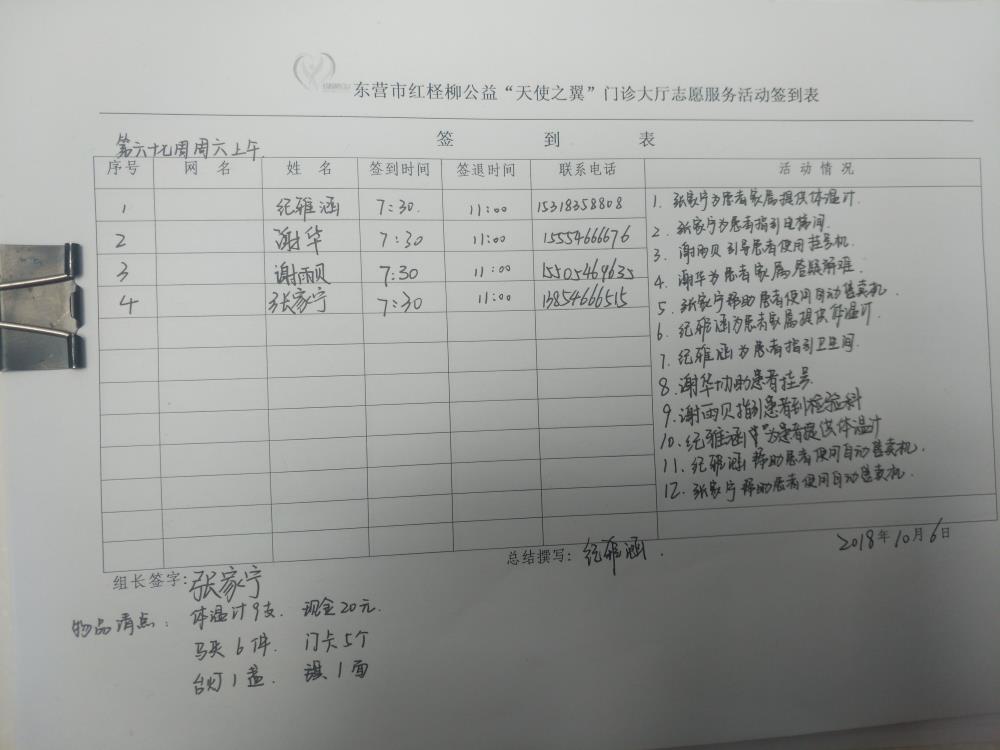 东营市红柽柳公益“天使之翼”门诊大厅志愿服务活动签到表
签 到 表
第六十九周周六上午.
序号 网 名 姓 名 签到时间 签退时间 联系电话 活动情况
1 纪雅涵 7:30. 11:00 15318358808
2 谢华 7:30 11:00 15554666676
3 谢雨贝 7:30 11:00 15505469635
4 张家宁 7:30 11:00 13854666515
1. 张家宁为患者家属提供体温计.
2. 张家宁为患者指引电梯间.
3. 谢雨贝引导患者使用挂号机.
4. 谢华为患者家属答疑解难.
5. 张家宁帮助患者使用自动售卖机.
6. 纪雅涵为患者家属提供体温计.
7. 纪雅涵为患者指引卫生间.
8. 谢华协助患者挂号
9. 谢雨贝指引患者到检验科
10. 纪雅涵为患者提供体温计
11. 纪雅涵帮助患者使用自动售卖机.
12. 张家宁帮助患者使用自动售卖机.
组长签字:张家宁 总结撰写:纪雅涵. 2018年10月6日
物品清点: 体温计9支. 现金20元.
马夹6件. 门卡5个
台灯1盏. 旗1面